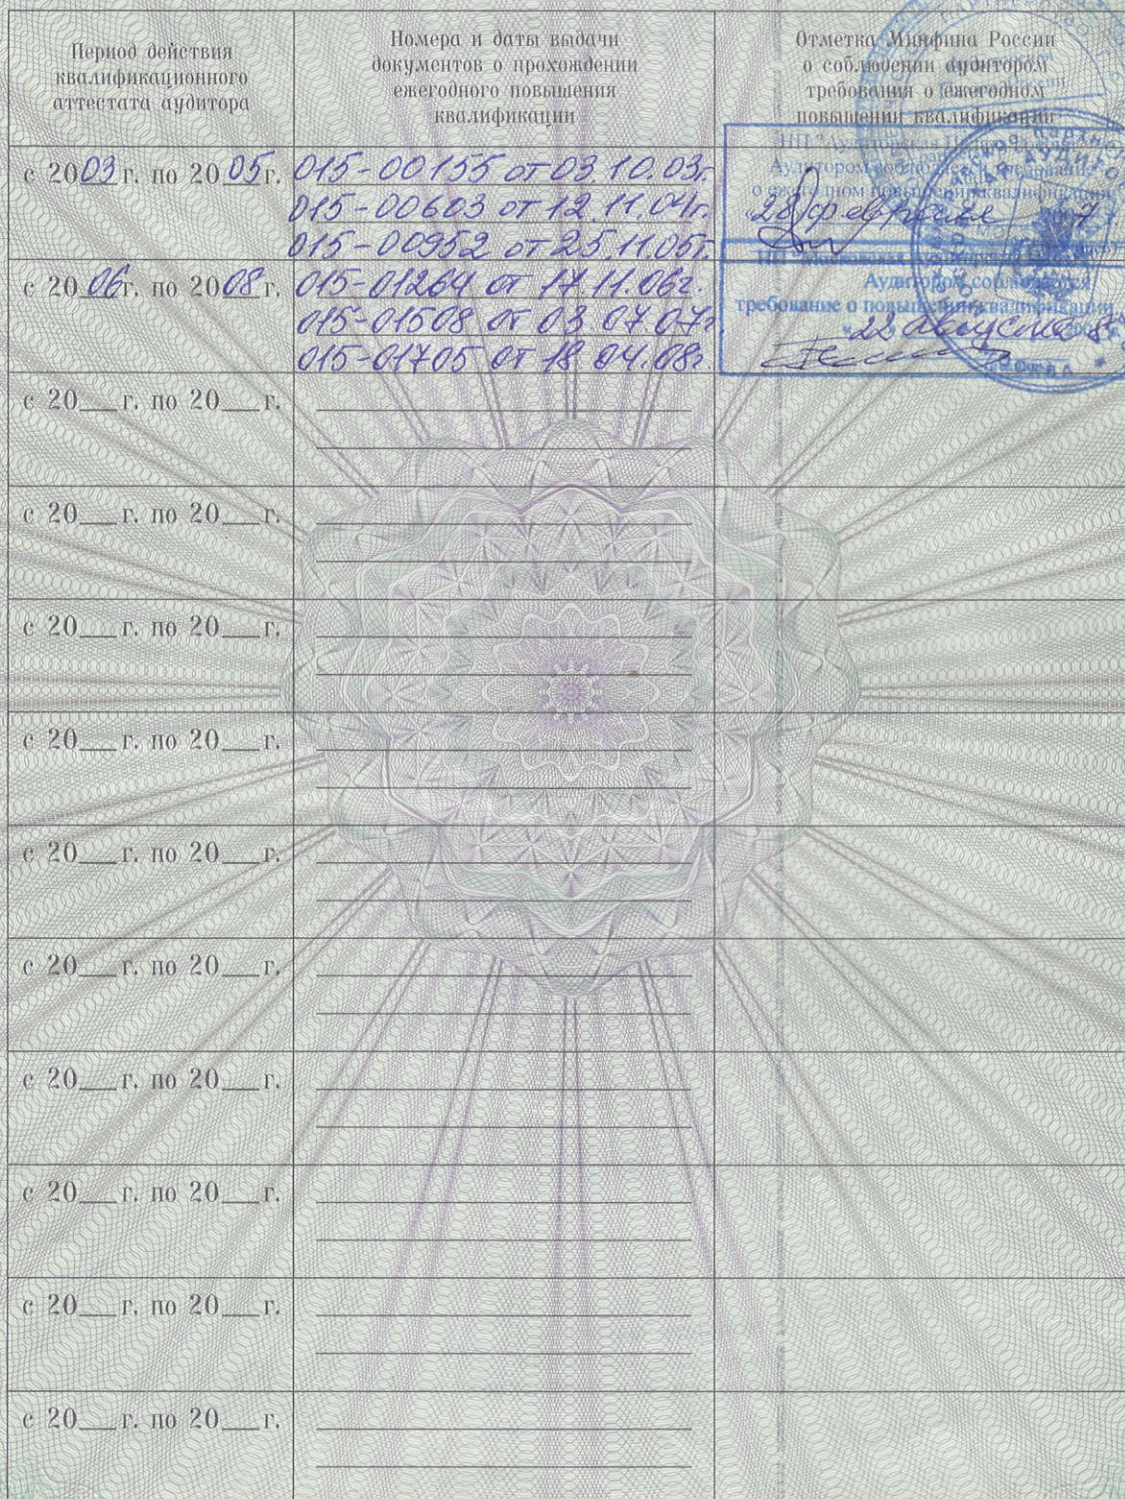 Период действия
квалификационного
аттестата аудитора
Номера и даты выдачи
документов о прохождении
ежегодного повышения
квалификации
Отметка Минфина России
о соблюдении аудитором
требования о ежегодном
повышении квалификации
с 2003 г. по 2005 г.
015-00155 от 03.10.03г.
015-00603 от 12.11.04г.
015-00952 от 25.11.05г.
НП "Аудиторская
Аудитором соблюдено требование
о ежегодном повышении квалификации
"28" февраля 7
с 2006 г. по 2008 г.
015-01264 от 17.11.06г.
015-01508 от 03.07.07г
015-01705 от 18.04.08г.
НП "Московская аудиторская
Аудитором соблюдается
требование о повышении квалификации
"22" августа 8
с 20__г. по 20__г.
с 20__г. по 20__г.
с 20__г. по 20__г.
с 20__г. по 20__г.
с 20__г. по 20__г.
с 20__г. по 20__г.
с 20__г. по 20__г.
с 20__г. по 20__г.
с 20__г. по 20__г.
с 20__г. по 20__г.